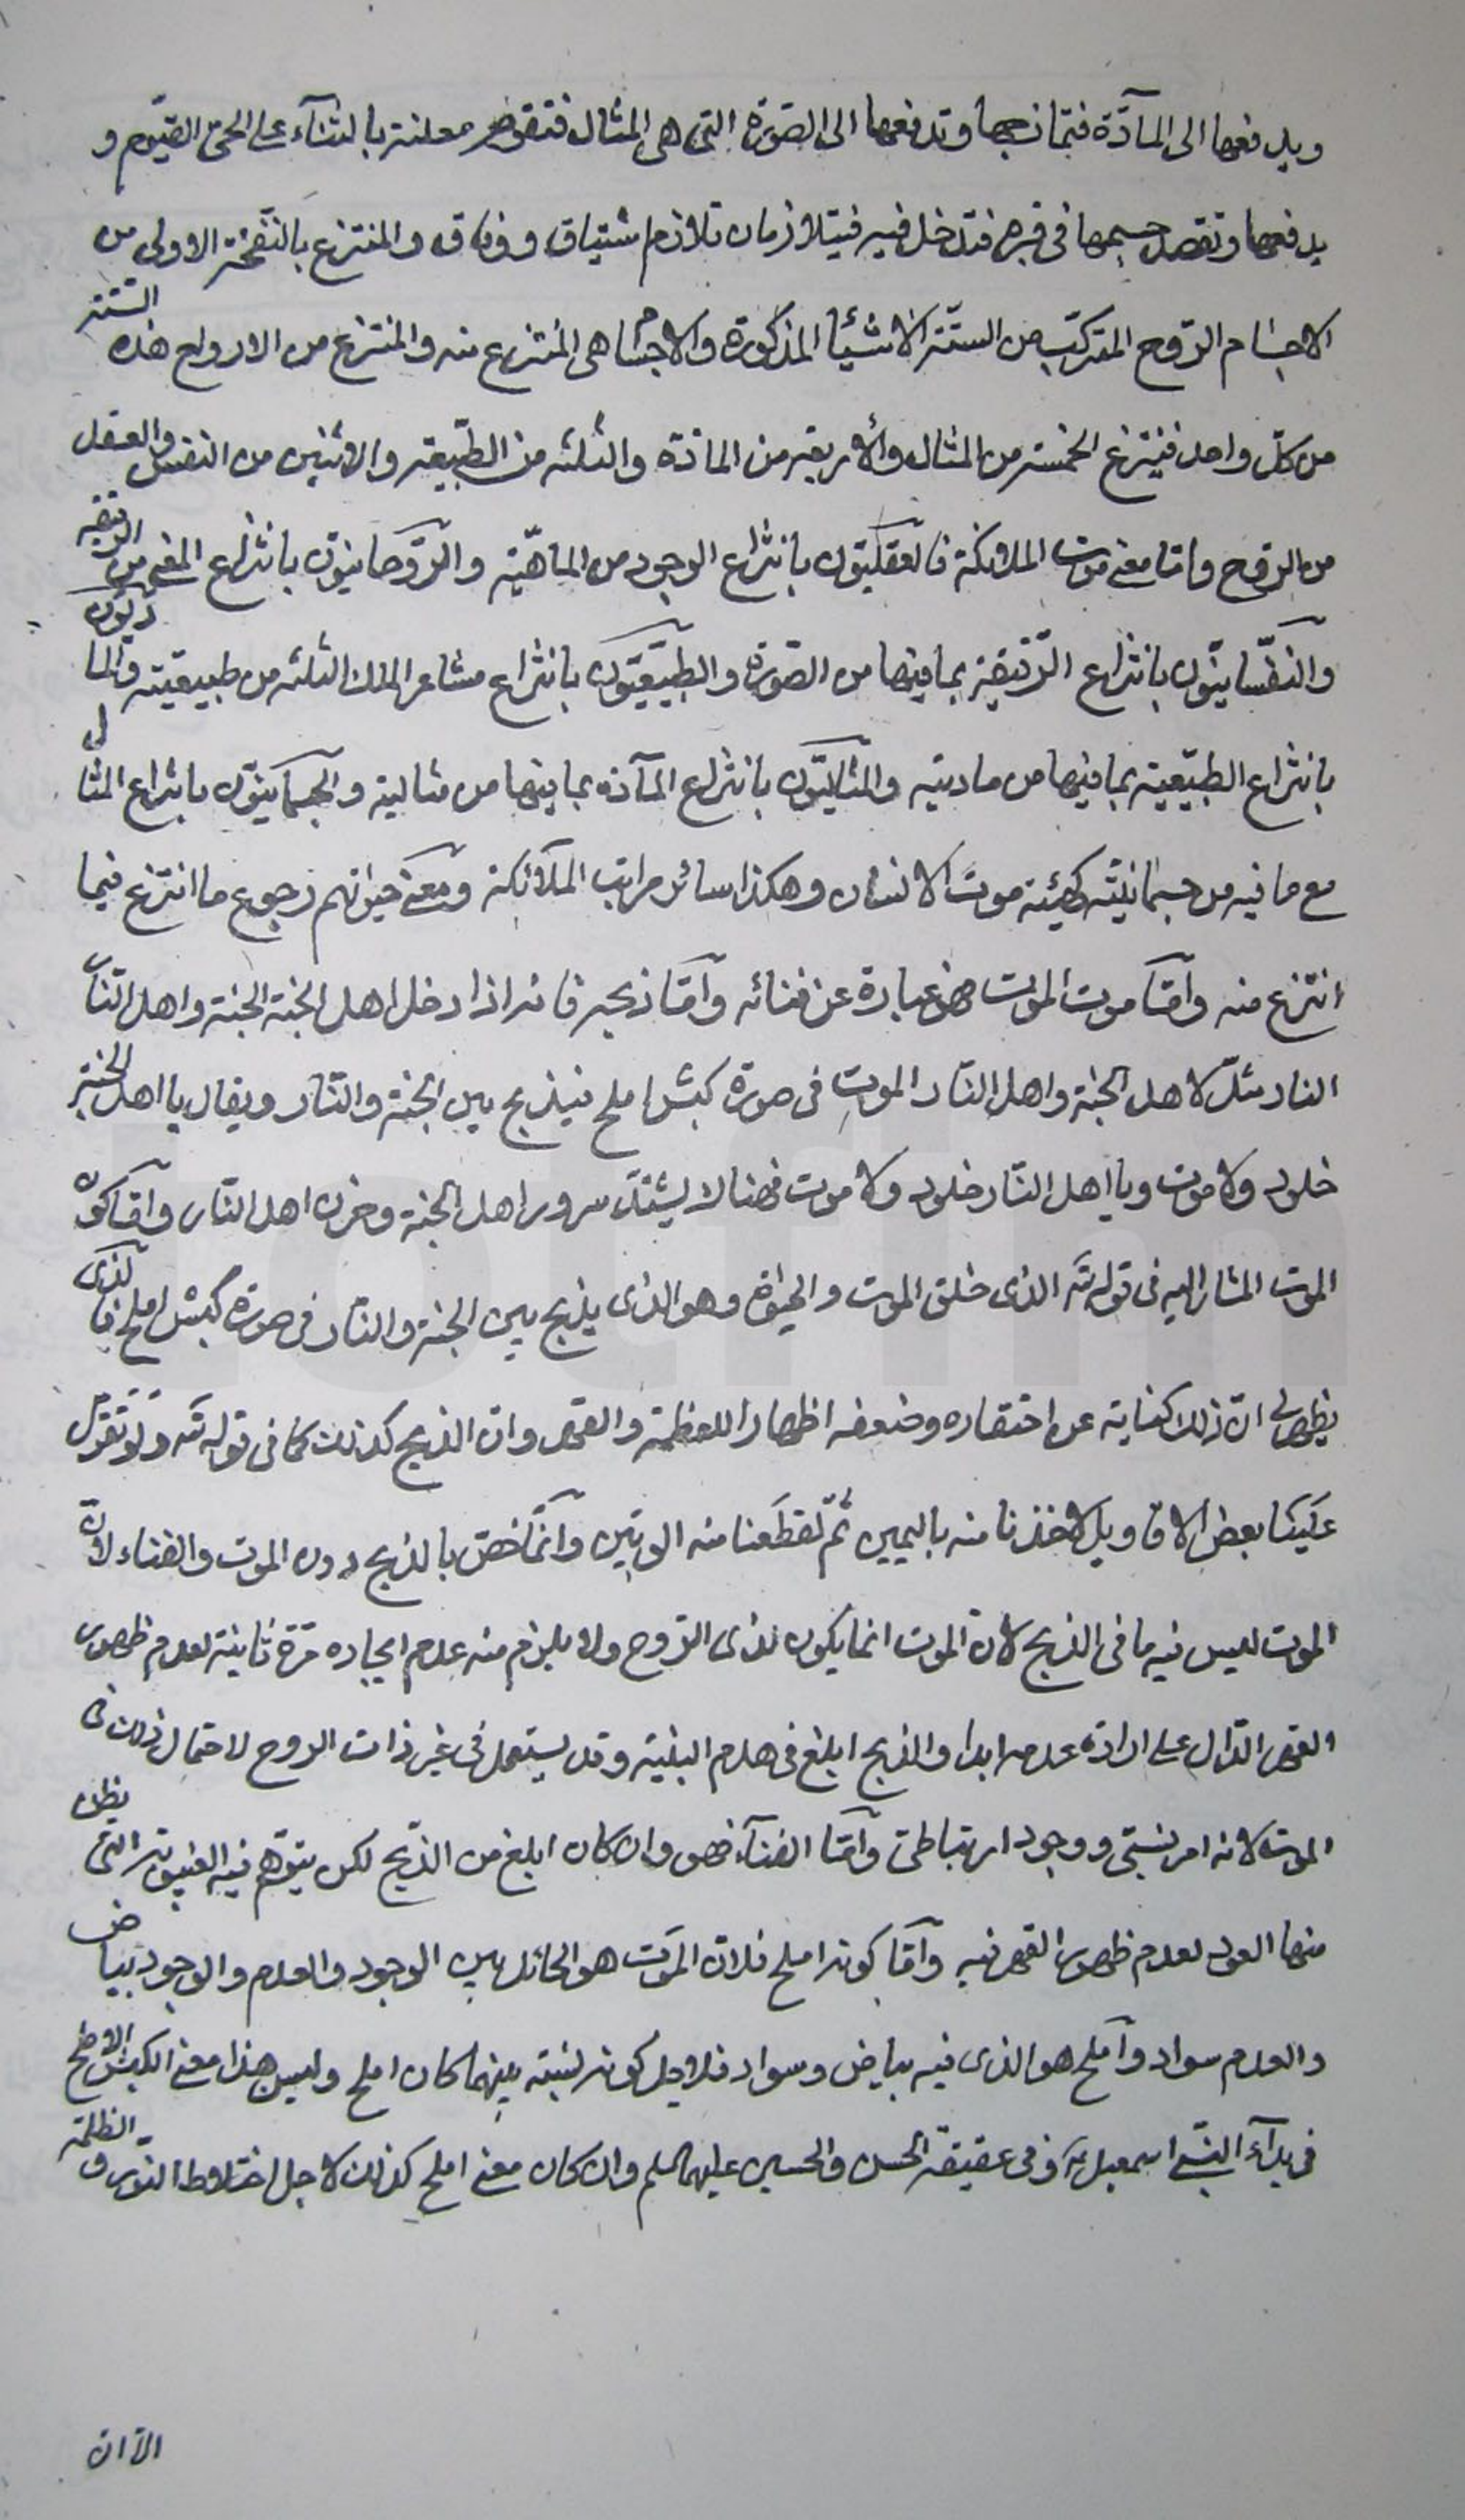 ويدفعها الى المآدّة فيتمازجها وتدفعها الى الصّورة التى هى المثال فتقوم معلنة بالثنآء على الحىّ القيّوم و
يدفعها وتقصد جسمها فى قبره فتدخل فيه فيتلازمان تلازم اشتياق ووفاق والمنتزع بالنّفخة الاولى من
الاجسام الرّوح المتركّب من الستّة الاشيآء المذكورة والاجسام هى المنتزع منه والمنتزع من الارواح هذه الستّة
من كلّ واحد فينتزع الخمسة من المثال والأربعة من المادّة والثلثه من الطّبيعة والاثنين من النفس والعقل
من الروح وامّا معنى موت الملائكة فالعقليّون بانتزاع الوجود من الماهيّة والرّوحانيّون بانتزاع المعنى من الرقيقة
والنّفسانيّون بانتزاع الرّقيقة بما فيها من الصّورة والطبيعيّون بانتزاع مشاعر الملك الثلثه من طبيعيّته والماديّون
بانتزاع الطبيعية بما فيها من ماديته والمثاليّون بانتزاع المآدة بما فيها من مثالية والجسمانيّون بانتزاع المثال
مع ما فيه من جسمانيّته كهيئة موت الانسان وهكذا سائر مراتب الملآئكة ومعنى حيوتهم رجوع ما انتزع فيما
انتزع منه وامّا موت الموت فهو عبارة عن فنائه وامّا ذبحه فانه اذا دخل اهل الجنة الجنة واهل النار
النار مثّل لاهل الجنة واهل النار الموت فى صورة كبش املح فيذبح بين الجنة والنار ويقال يا اهل الجنة
خلود ولا موت ويا اهل النار خلود ولا موت فهنالك يشتدّ سرور اهل الجنة وحزن اهل النار وامّا كون
الموت المشار اليه فى قوله تع الذى خلق الموت والحيوة وهو الذى يذبح بين الجنة والنار فى صورة كبش املح فالذى
يظهر لى انّ ذلك كناية عن احتقاره وضعفه اظهارا للعظمة والقهر وان الذبح كذلك كما فى قوله تع ولو تقوّل
علينا بعض الاقاويل لاخذنا منه باليمين ثمّ لقطعنا منه الوتين وانّما خصّ بالذبح دون الموت والفناء لانّ
الموت ليس فيه ما فى الذبح لانّ الموت انما يكون لذى الرّوح ولا يلزم منه عدم ايجاده مرّة ثانية لعدم ظهور
القهر الدّال على ارادة عدمه ابدا والذبح ابلغ فى هدم البنية وقد يستعمل فى غير ذات الروح لاحتمال ذلك فى
الموت لانه امر نسبىّ ووجود ارتباطىّ وامّا الفنآء فهو وان كان ابلغ من الذّبح لكن يتوهّم فيه الغيبوبة التى يظنّ
منها العود لعدم ظهور القهر فيه وامّا كونه املح فلانّ الموت هو الحائل بين الوجود والعدم والوجود بياض
والعدم سواد واملح هو الذى فيه بياض وسواد فلاجل كونه نسبته بينهما كان املح وليس هذا معنى الكبش الاملح
فى فدآء النبىّ اسمعيل ع وفى عقيقة الحسن والحسين عليهما السلم وان كان معنى املح كذلك لاجل اختلاط النّور والظلمة
الّا ان